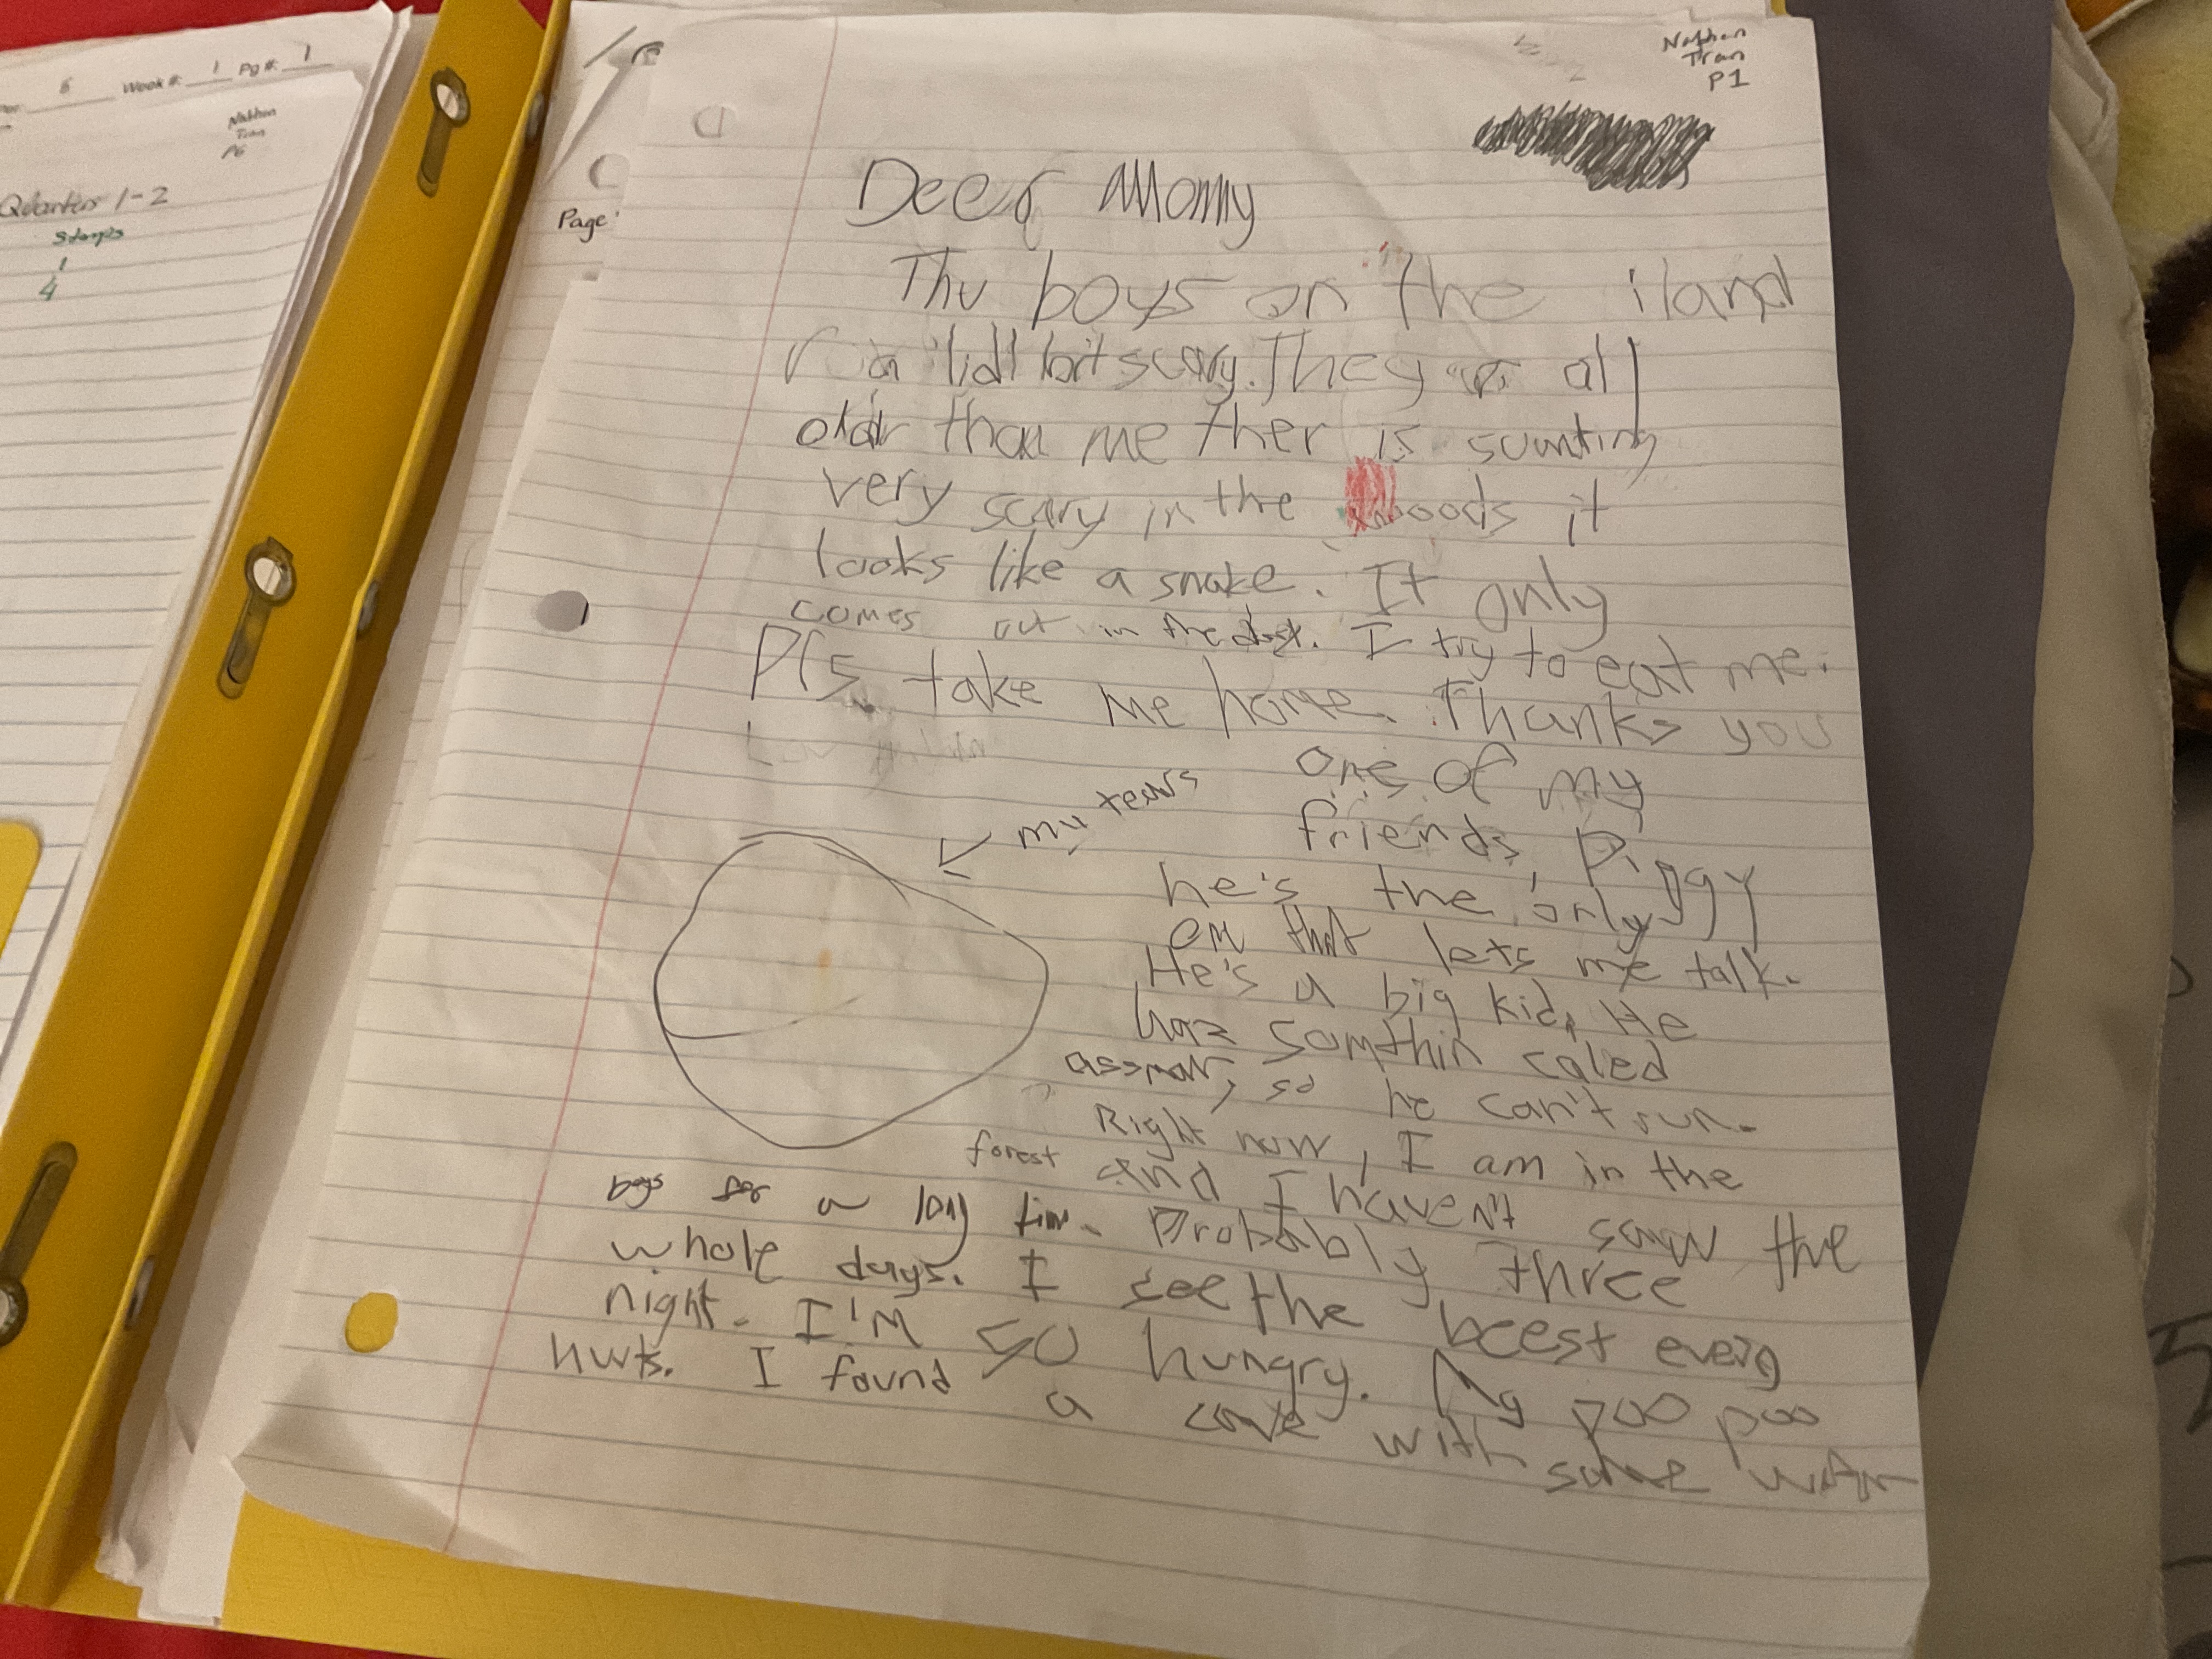 6 Week #: 1 Pg #: 1
Nathan
Tran
P6
Quarters 1-2
Stamps
1
4
Page
Nathan
Tran
P1
Deer Mommy
Thu boys on the iland
r a lidl bit scary. They all
oldr than me ther is sumting
very scary in the woods it
looks like a snake. It only
comes out in the dark. I try to eat me.
Pls take me home. Thanks you
my tears
one of my
friends, Piggy
he's the only
on that lets me talk.
He's a big kid, He
haz somthin caled
assmar, so he can't run.
Right now, I am in the
forest and I haven't saw the
boys for a long tim. Probably three
whole days. I see the beest every
night. I'M so hungry. My poo poo
hurts. I found a cave with some watr